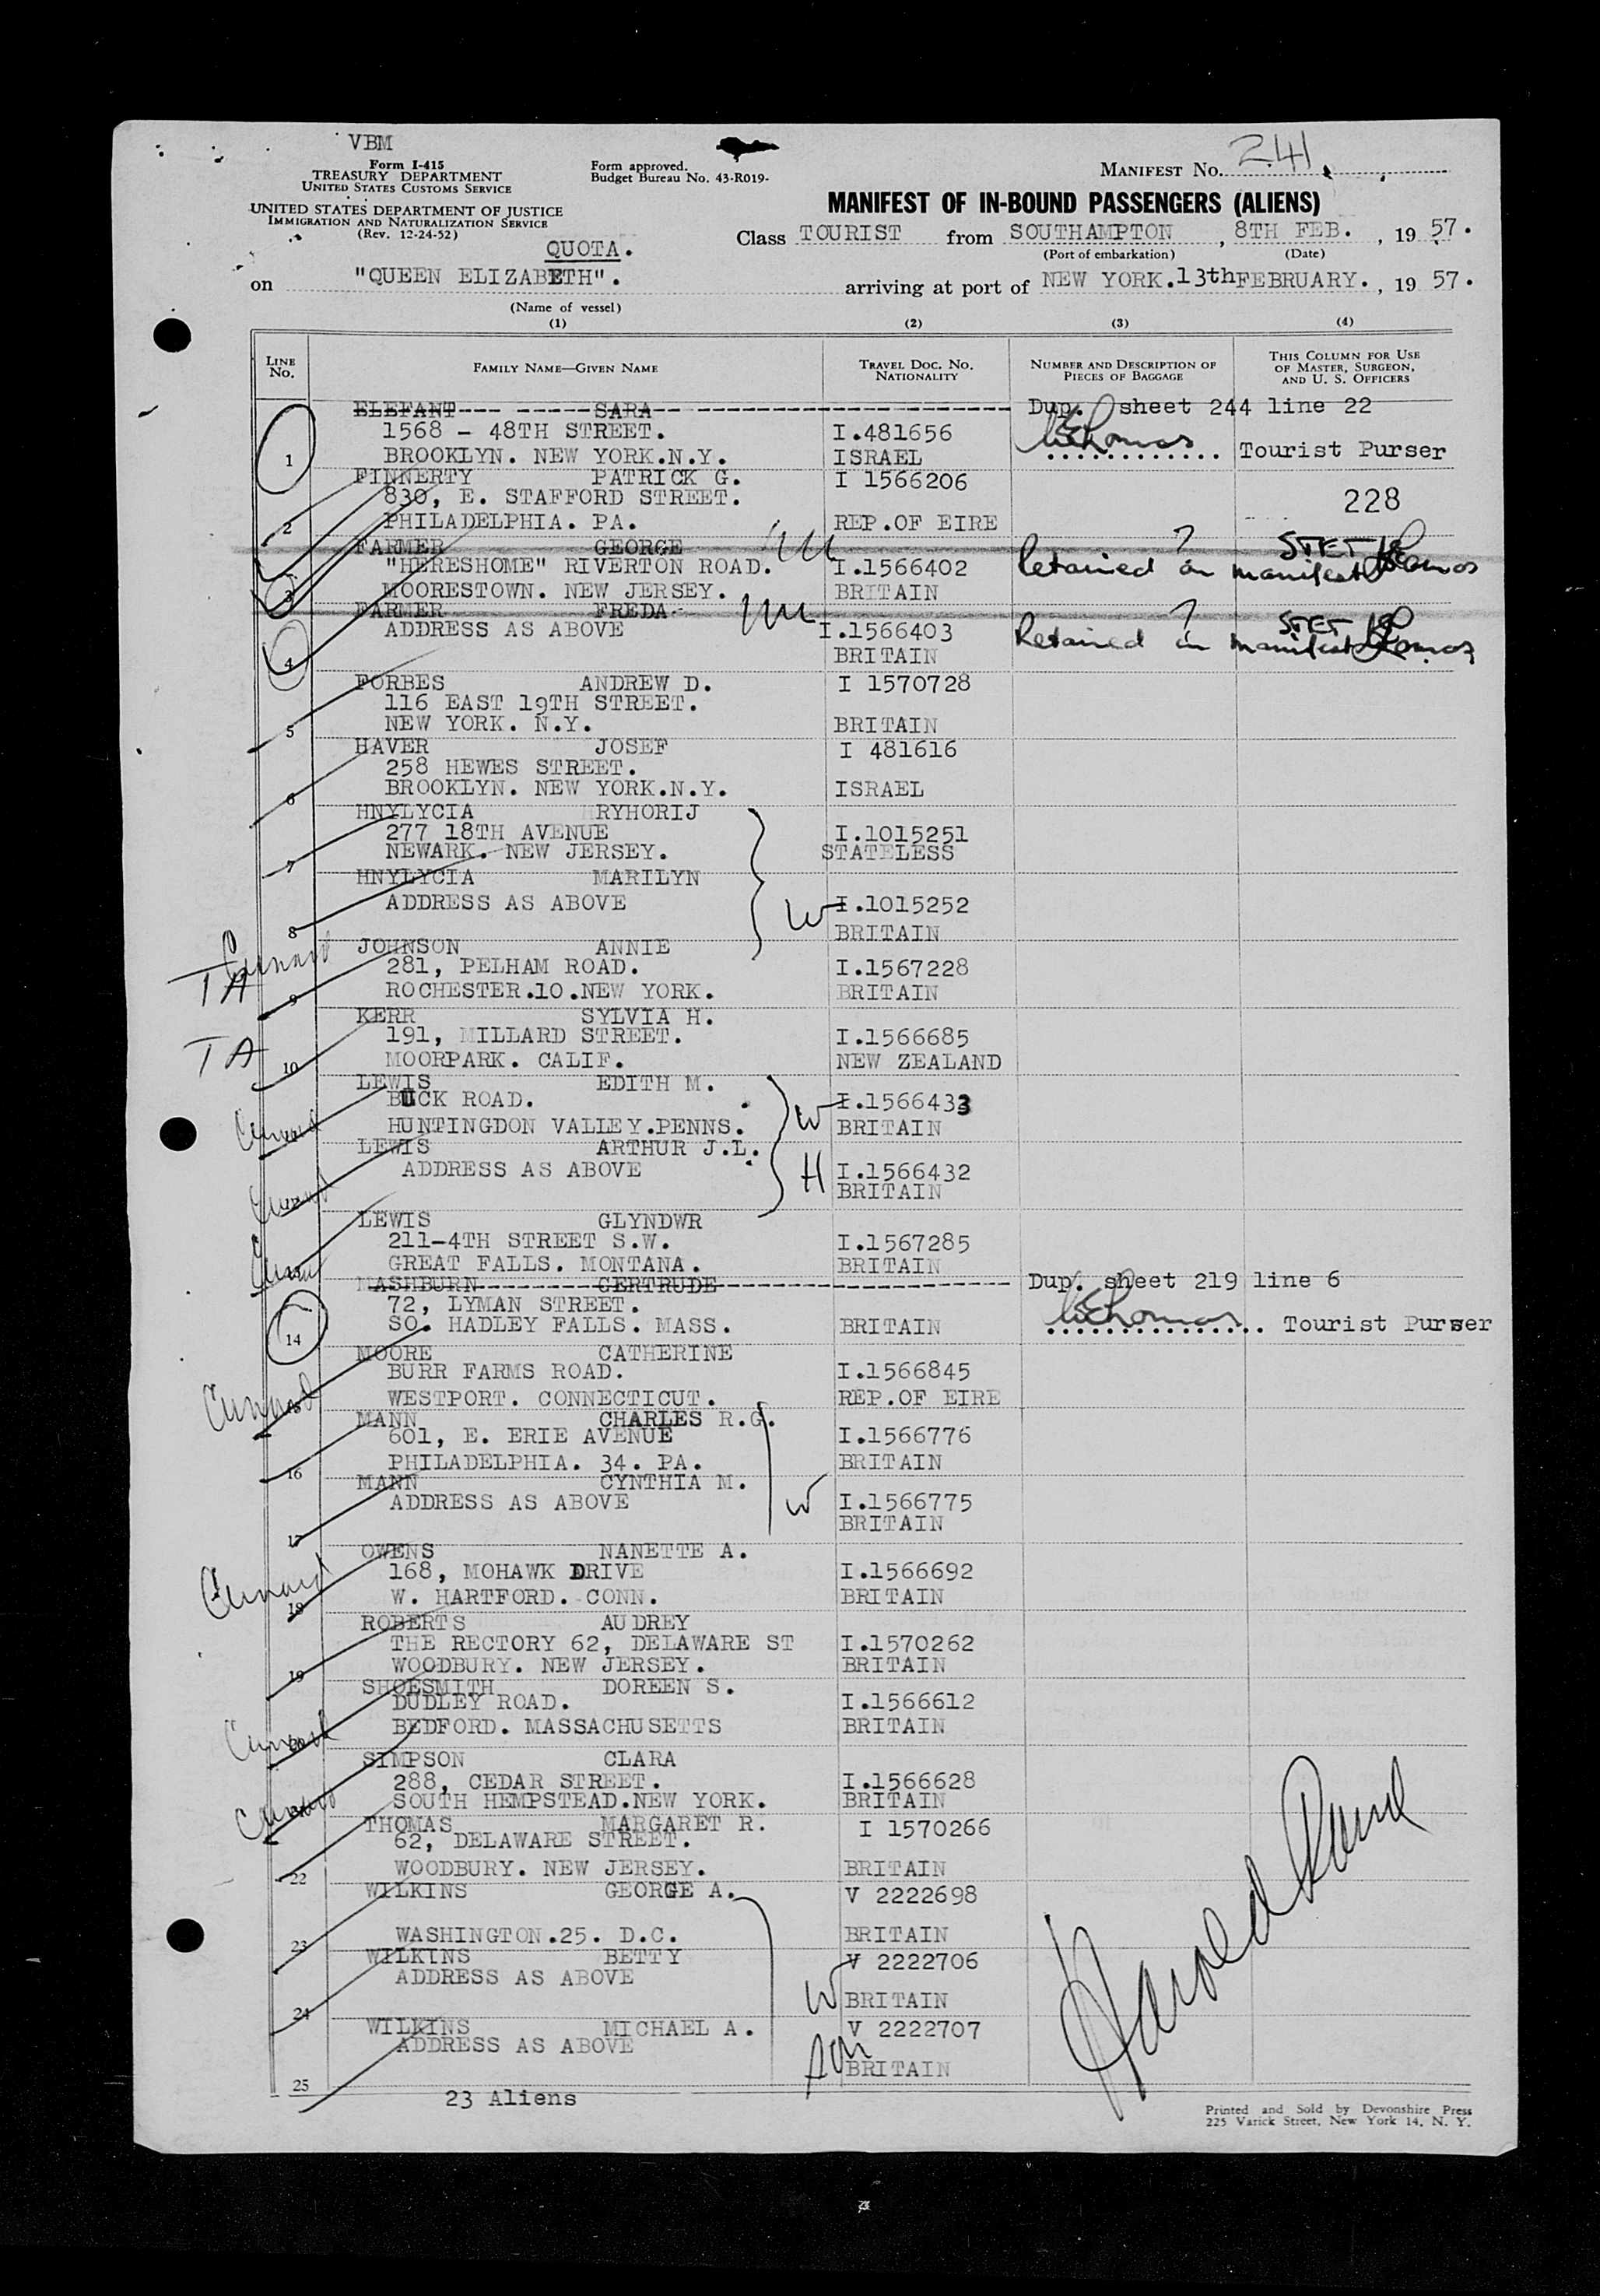 VBM
Form I-415
TREASURY DEPARTMENT
UNITED STATES CUSTOMS SERVICE
UNITED STATES DEPARTMENT OF JUSTICE
IMMIGRATION AND NATURALIZATION SERVICE
(Rev. 12-24-52)
Form approved.
Budget Bureau No. 43-R019-
MANIFEST NO. 241
MANIFEST OF IN-BOUND PASSENGERS (ALIENS)
QUOTA.
Class TOURIST from SOUTHAMPTON , 8TH FEB. , 19 57.
(Port of embarkation) (Date)
on "QUEEN ELIZABETH". arriving at port of NEW YORK. 13th FEBRUARY. , 19 57.
(Name of vessel)
(1) (2) (3) (4)
LINE NO.
FAMILY NAME—GIVEN NAME
TRAVEL DOC. NO. NATIONALITY
NUMBER AND DESCRIPTION OF PIECES OF BAGGAGE
THIS COLUMN FOR USE OF MASTER, SURGEON, AND U. S. OFFICERS
ELEFANT SARA Dup. sheet 244 line 22
1568 - 48TH STREET. I.481656
1 BROOKLYN. NEW YORK.N.Y. ISRAEL Tourist Purser
FINNERTY PATRICK G. I 1566206
830, E. STAFFORD STREET. 228
2 PHILADELPHIA. PA. REP.OF EIRE
FARMER GEORGE ? STET
"HERESHOME" RIVERTON ROAD. I.1566402 Retained on manifest
3 MOORESTOWN. NEW JERSEY. BRITAIN
FARMER FREDA ? STET
ADDRESS AS ABOVE I.1566403 Retained in manifest
4 BRITAIN
FORBES ANDREW D. I 1570728
116 EAST 19TH STREET.
5 NEW YORK. N.Y. BRITAIN
HAVER JOSEF I 481616
258 HEWES STREET.
6 BROOKLYN. NEW YORK.N.Y. ISRAEL
HNYLYCIA RYHORIJ
277 18TH AVENUE I.1015251
7 NEWARK. NEW JERSEY. STATELESS
HNYLYCIA MARILYN
ADDRESS AS ABOVE W I.1015252
8 BRITAIN
Cunard JOHNSON ANNIE
TA 281, PELHAM ROAD. I.1567228
9 ROCHESTER.10.NEW YORK. BRITAIN
KERR SYLVIA H.
TA 191, MILLARD STREET. I.1566685
10 MOORPARK. CALIF. NEW ZEALAND
LEWIS EDITH M.
BUCK ROAD. W I.1566433
Cunard HUNTINGDON VALLEY.PENNS. BRITAIN
LEWIS ARTHUR J.L.
ADDRESS AS ABOVE H I.1566432
Cunard BRITAIN
LEWIS GLYNDWR
211-4TH STREET S.W. I.1567285
Cunard GREAT FALLS. MONTANA. BRITAIN
MASHBURN GERTRUDE Dup. sheet 219 line 6
72, LYMAN STREET.
14 SO. HADLEY FALLS. MASS. BRITAIN Tourist Purser
MOORE CATHERINE
BURR FARMS ROAD. I.1566845
Cunard 15 WESTPORT. CONNECTICUT. REP.OF EIRE
MANN CHARLES R.G.
601, E. ERIE AVENUE I.1566776
16 PHILADELPHIA. 34. PA. BRITAIN
MANN CYNTHIA M.
ADDRESS AS ABOVE W I.1566775
17 BRITAIN
OWENS NANETTE A.
168, MOHAWK DRIVE I.1566692
Cunard 18 W. HARTFORD. CONN. BRITAIN
ROBERTS AUDREY
THE RECTORY 62, DELAWARE ST I.1570262
19 WOODBURY. NEW JERSEY. BRITAIN
SHOESMITH DOREEN S.
DUDLEY ROAD. I.1566612
Cunard 20 BEDFORD. MASSACHUSETTS BRITAIN
SIMPSON CLARA
288, CEDAR STREET. I.1566628
Cunard SOUTH HEMPSTEAD.NEW YORK. BRITAIN
THOMAS MARGARET R. I 1570266
62, DELAWARE STREET.
22 WOODBURY. NEW JERSEY. BRITAIN
WILKINS GEORGE A. V 2222698
23 WASHINGTON.25. D.C. BRITAIN
WILKINS BETTY V 2222706
ADDRESS AS ABOVE
24 W BRITAIN
WILKINS MICHAEL A. V 2222707
ADDRESS AS ABOVE
25 son BRITAIN
23 Aliens
Printed and Sold by Devonshire Press
225 Varick Street, New York 14, N. Y.